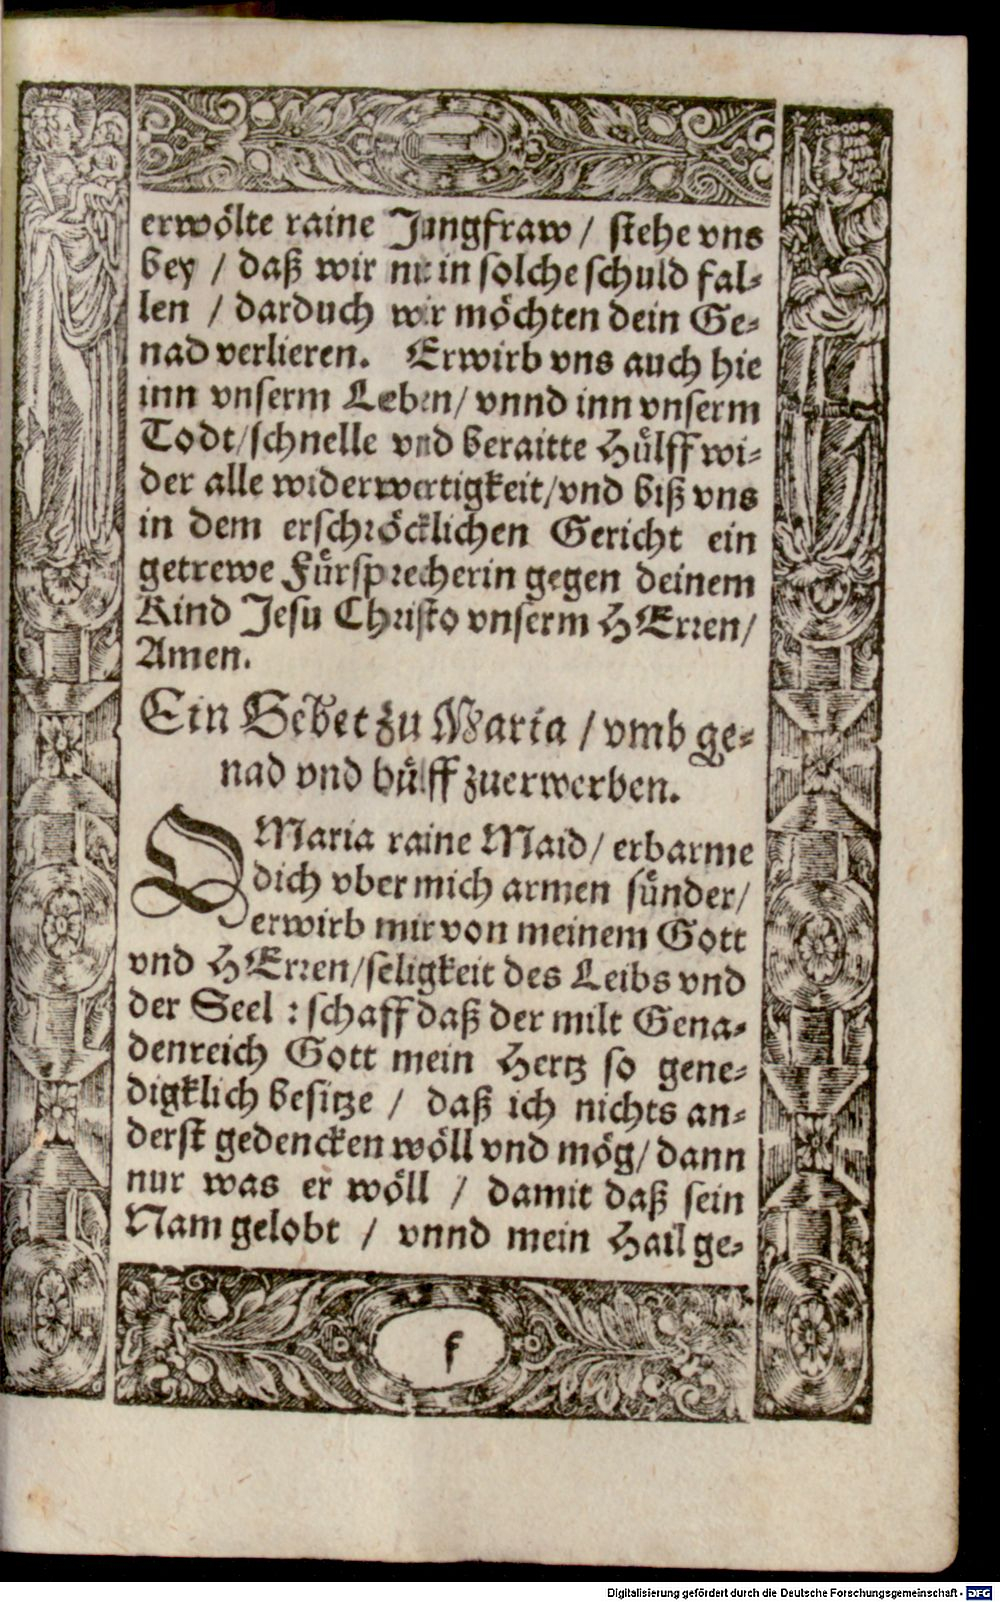 erwölte raine Jungfraw / stehe vns
bey / daß wir nit in solche schuld fal-
len / darduch wir möchten dein Ge-
nad verlieren. Erwirb vns auch hie
inn vnserm Leben / vnnd inn vnserm
Todt / schnelle vnd beraitte Hülff wi-
der alle widerwertigkeit / vnd biß vns
in dem erschröcklichen Gericht ein
getrewe Fürsprecherin gegen deinem
Kind Jesu Christo vnserm HErren /
Amen.
Ein Gebet zu Maria / vmb ge-
nad vnd hülff zuerwerben.
O Maria raine Maid / erbarme
dich vber mich armen sünder /
erwirb mir von meinem Gott
vnd HErren / seligkeit des Leibs vnd
der Seel : schaff daß der milt Gena-
denreich Gott mein Hertz so gene-
digklich besitze / daß ich nichts an-
derst gedencken wöll vnd mög / dann
nur was er wöll / damit daß sein
Nam gelobt / vnnd mein Hail ge-
f
Digitalisierung gefördert durch die Deutsche Forschungsgemeinschaft - DFG